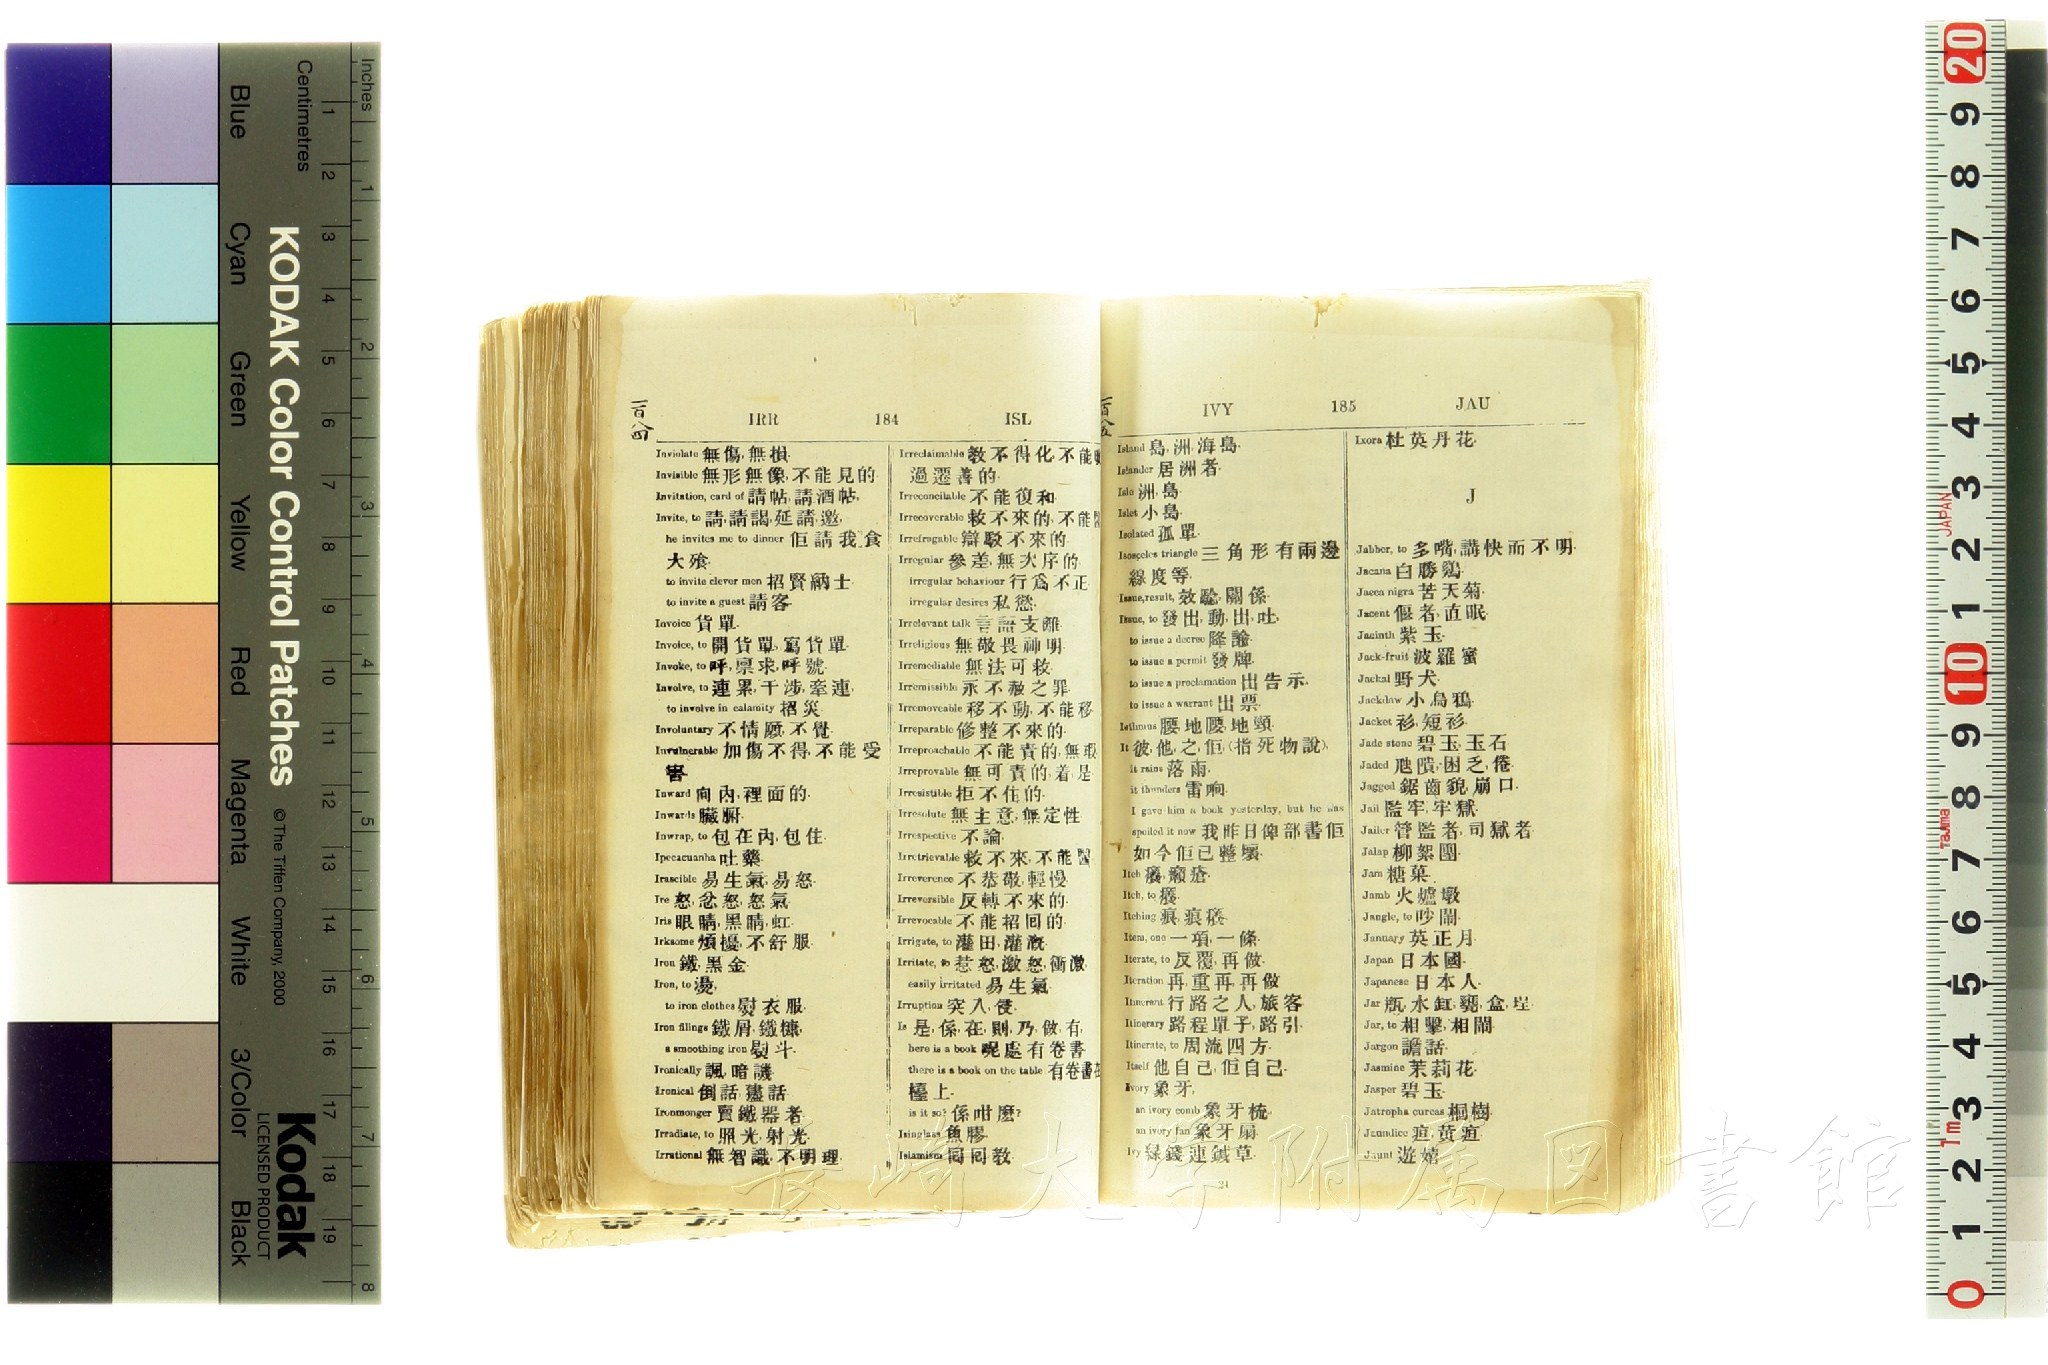 IRR 184 ISL
Inviolate 無傷, 無損.
Invisible 無形無像, 不能見的.
Invitation, card of 請帖, 請酒帖,
Invite, to 請, 請謁, 延請, 邀,
he invites me to dinner 佢請我食
大飱.
to invite clever men 招賢納士.
to invite a guest 請客.
Invoice 貨單.
Invoice, to 開貨單, 寫貨單.
Invoke, to 呼, 禀求, 呼號.
Involve, to 連累, 干涉, 牽連,
to involve in calamity 招災.
Involuntary 不情愿, 不覺.
Invulnerable 加傷不得, 不能受
害.
Inward 向內, 裡面的.
Inwards 臟腑.
Inwrap, to 包在內, 包住.
Ipecacuanha 吐藥.
Irascible 易生氣, 易怒.
Ire 怒, 忿怒, 怒氣.
Iris 眼睛, 黑睛, 虹.
Irksome 煩擾, 不舒服.
Iron 鐵, 黑金.
Iron, to 燙,
to iron clothes 熨衣服.
Iron filings 鐵屑, 鐵糠,
a smoothing iron 熨斗.
Ironically 諷, 暗譏
Ironical 倒話,
Ironmonger 賣鐵器者,
Irradiate, to 照光, 射光.
Irrational 無智識, 不明理.
Irreclaimable 教不得化, 不能
過遷善的.
Irreconcilable 不能復和.
Irrecoverable 救不來的, 不能醫
Irrefragable 辯駁不來的.
Irregular 參差, 無次序的.
irregular behaviour 行爲不正
irregular desires 私慾.
Irrelevant talk 言語支離.
Irreligious 無敬畏神明.
Irremediable 無法可救.
Irremissible 永不赦之罪.
Irremoveable 移不動, 不能移
Irreparable 修整不來的.
Irreproachable 不能責的, 無瑕
Irreprovable 無可責的, 着, 是
Irresistible 拒不住的.
Irresolute 無主意, 無定性.
Irrespective 不論.
Irretrievable 救不來, 不能醫.
Irreverence 不恭敬, 輕慢
Irreversible 反轉不來的.
Irrevocable 不能招回的.
Irrigate, to 灌田, 灌溉.
Irritate, to 惹怒, 激怒, 衝激.
easily irritated 易生氣.
Irruption 突入, 侵.
Is 是, 係, 在, 則, 乃, 做, 有,
here is a book 呢處有卷書.
there is a book on the table 有卷書在
檯上.
is it so? 係咁麽?
Isinglass 魚膠.
Islamism 回回教.
IVY 185 JAU
Island 島, 洲, 海島.
Islander 居洲者.
Isle 洲, 島.
Islet 小島.
Isolated 孤單.
Isosceles triangle 三角形有兩邊
線度等.
Issue, result, 效驗, 關係.
Issue, to 發出, 動, 出, 吐,
to issue a decree 降諭.
to issue a permit 發牌.
to issue a proclamation 出告示.
to issue a warrant 出票.
Isthmus 腰地, 腰, 地頸.
It 彼, 他, 之, 佢 (指死物說),
it rains 落雨.
it thunders 雷响.
I gave him a book yesterday, but he has
spoiled it now 我昨日俾部書佢
如今佢已整壞.
Itch 癢, 癩瘡.
Itch, to 癢.
Itching 痕, 痕癢.
Item, one 一項, 一條.
Iterate, to 反覆, 再做.
Iteration 再, 重再, 再做
Itinerant 行路之人, 旅客.
Itinerary 路程單子, 路引.
Itinerate, to 周流四方.
Itself 他自己, 佢自己.
Ivory 象牙,
an ivory comb 象牙梳.
an ivory fan 象牙扇.
Ivy
24
Ixora 杜英丹花.
J
Jabber, to 多嘴, 講快而不明.
Jacana 白勝鷄.
Jacea nigra 苦天菊.
Jacent 偃者, 直眠.
Jacinth 紫玉.
Jack-fruit 波羅蜜
Jackal 野犬.
Jackdaw 小烏鴉.
Jacket 衫, 短衫.
Jade stone 碧玉, 玉石
Jaded 虺隤, 困乏, 倦.
Jagged 鋸齒貌, 崩口.
Jail 監牢, 牢獄.
Jailer 管監者, 司獄者.
Jalap 柳絮團.
Jam 糖菓.
Jamb 火爐墩
Jangle, to 吵鬧.
January 英正月.
Japan 日本國.
Japanese 日本人.
Jar 瓶, 水缸, 甕, 盒, 埕.
Jar, to 相擊, 相鬧.
Jargon 譫話.
Jasmine 茉莉花.
Jasper 碧玉.
Jatropha curcas 桐樹.
Jaundice 疸, 黃疸.
Jaunt 遊嬉.
長崎大学附属図書館
KODAK Color Control Patches
© The Tiffen Company, 2000
Kodak
LICENSED PRODUCT
Inches
Centimetres
Blue
Cyan
Green
Yellow
Red
Magenta
White
3/Color
Black
1 2 3 4 5 6 7 8 9 10 11 12 13 14 15 16 17 18 19
1 2 3 4 5 6 7 8
20 9 8 7 6 5 4 3 2 1 10 9 8 7 6 5 4 3 2 1 0
JAPAN
Tajima
1m